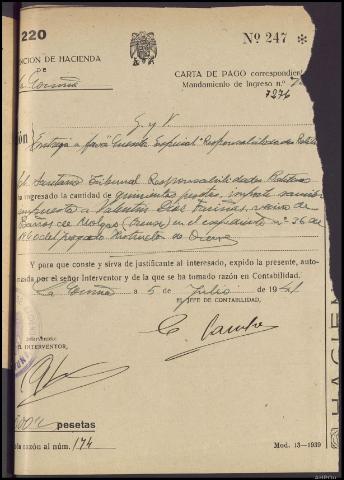 220
Nº 247 *
CION DE HACIENDA
DE
La Coruña
CARTA DE PAGO correspondien
Mandamiento de ingreso n.º
7276
G. y V.
Entrega a favor "Cuenta Especial" Responsabilidades Políti
Secretario Tribunal Responsabilidades Políticas
ha ingresado la cantidad de quinientas pesetas, importe sanción
impuesta a Valentín Díaz Fariñas, vecino de
Baños de Molgas (Orense) en el expediente nº 36 de
1940 del juzgado Instructor de Orense
Y para que conste y sirva de justificante al interesado, expido la presente, auto-
zada por el señor Interventor y de la que se ha tomado razón en Contabilidad.
La Coruña a 5 de Julio de 1941
EL JEFE DE CONTABILIDAD,
Intervenido:
EL INTERVENTOR,
pesetas
razón al núm. 174
Mod. 13-1939
HACIEN
AHPOu